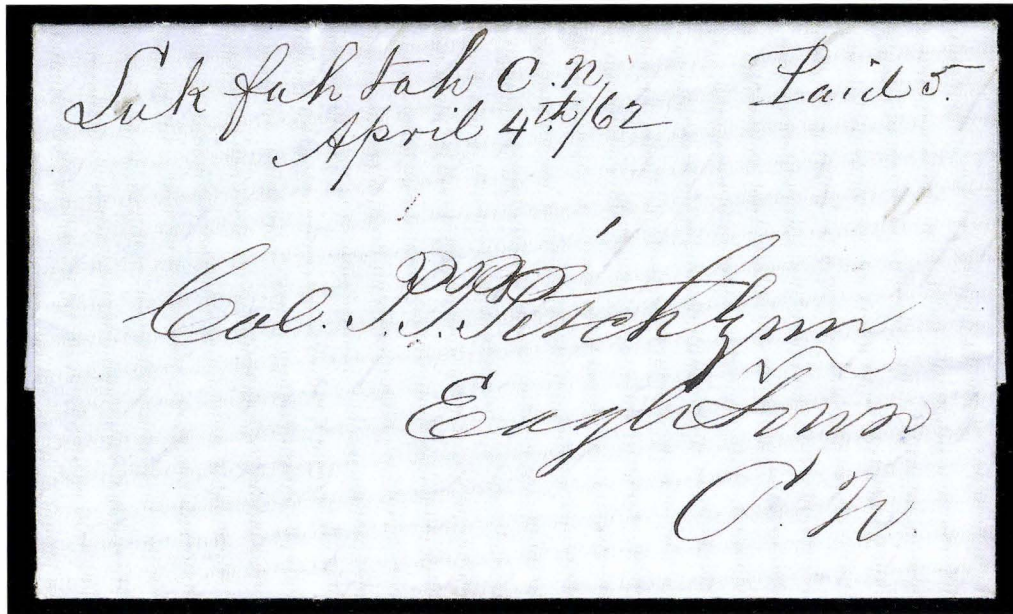 Luk fah tah C. N. Paid 5.
April 4th/62
Col. P. P. Pitchlynn
Eagle Town
C. N